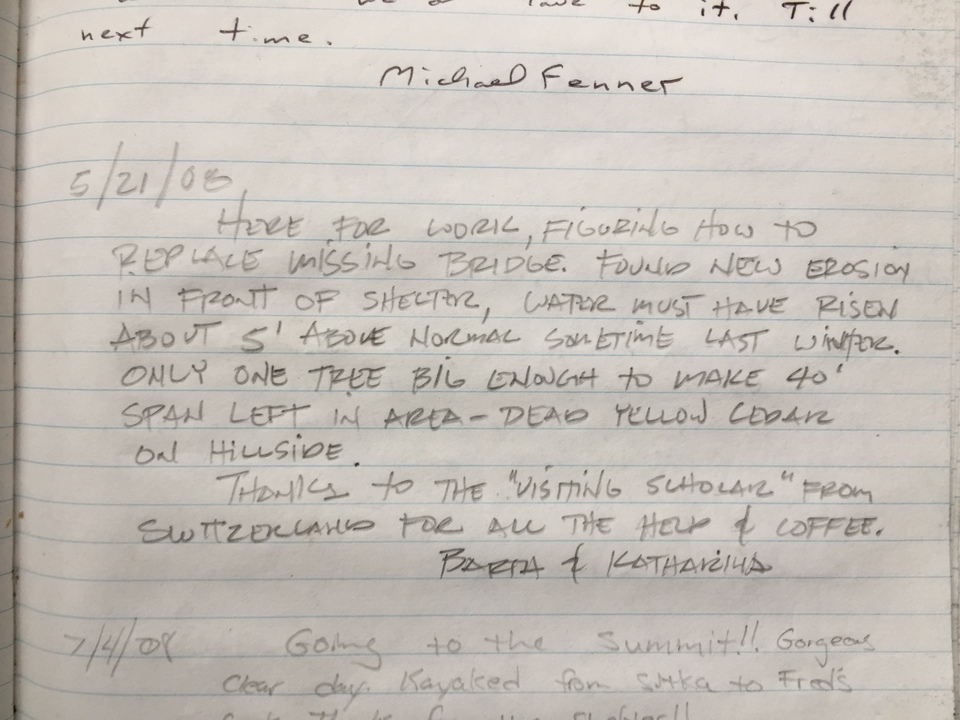 to it. Till
next time.
Michael Fenner
5/21/08
HERE FOR WORK, FIGURING HOW TO
REPLACE MISSING BRIDGE. FOUND NEW EROSION
IN FRONT OF SHELTER, WATER MUST HAVE RISEN
ABOUT 5' ABOVE NORMAL SOMETIME LAST WINTER.
ONLY ONE TREE BIG ENOUGH TO MAKE 40'
SPAN LEFT IN AREA - DEAD YELLOW CEDAR
ON HILLSIDE.
THANKS TO THE "VISITING SCHOLAR" FROM
SWITZERLAND FOR ALL THE HELP & COFFEE.
& KATHARINA
7/4/08 Going to the Summit!! Gorgeous
clear day. Kayaked from Sitka to Fred's